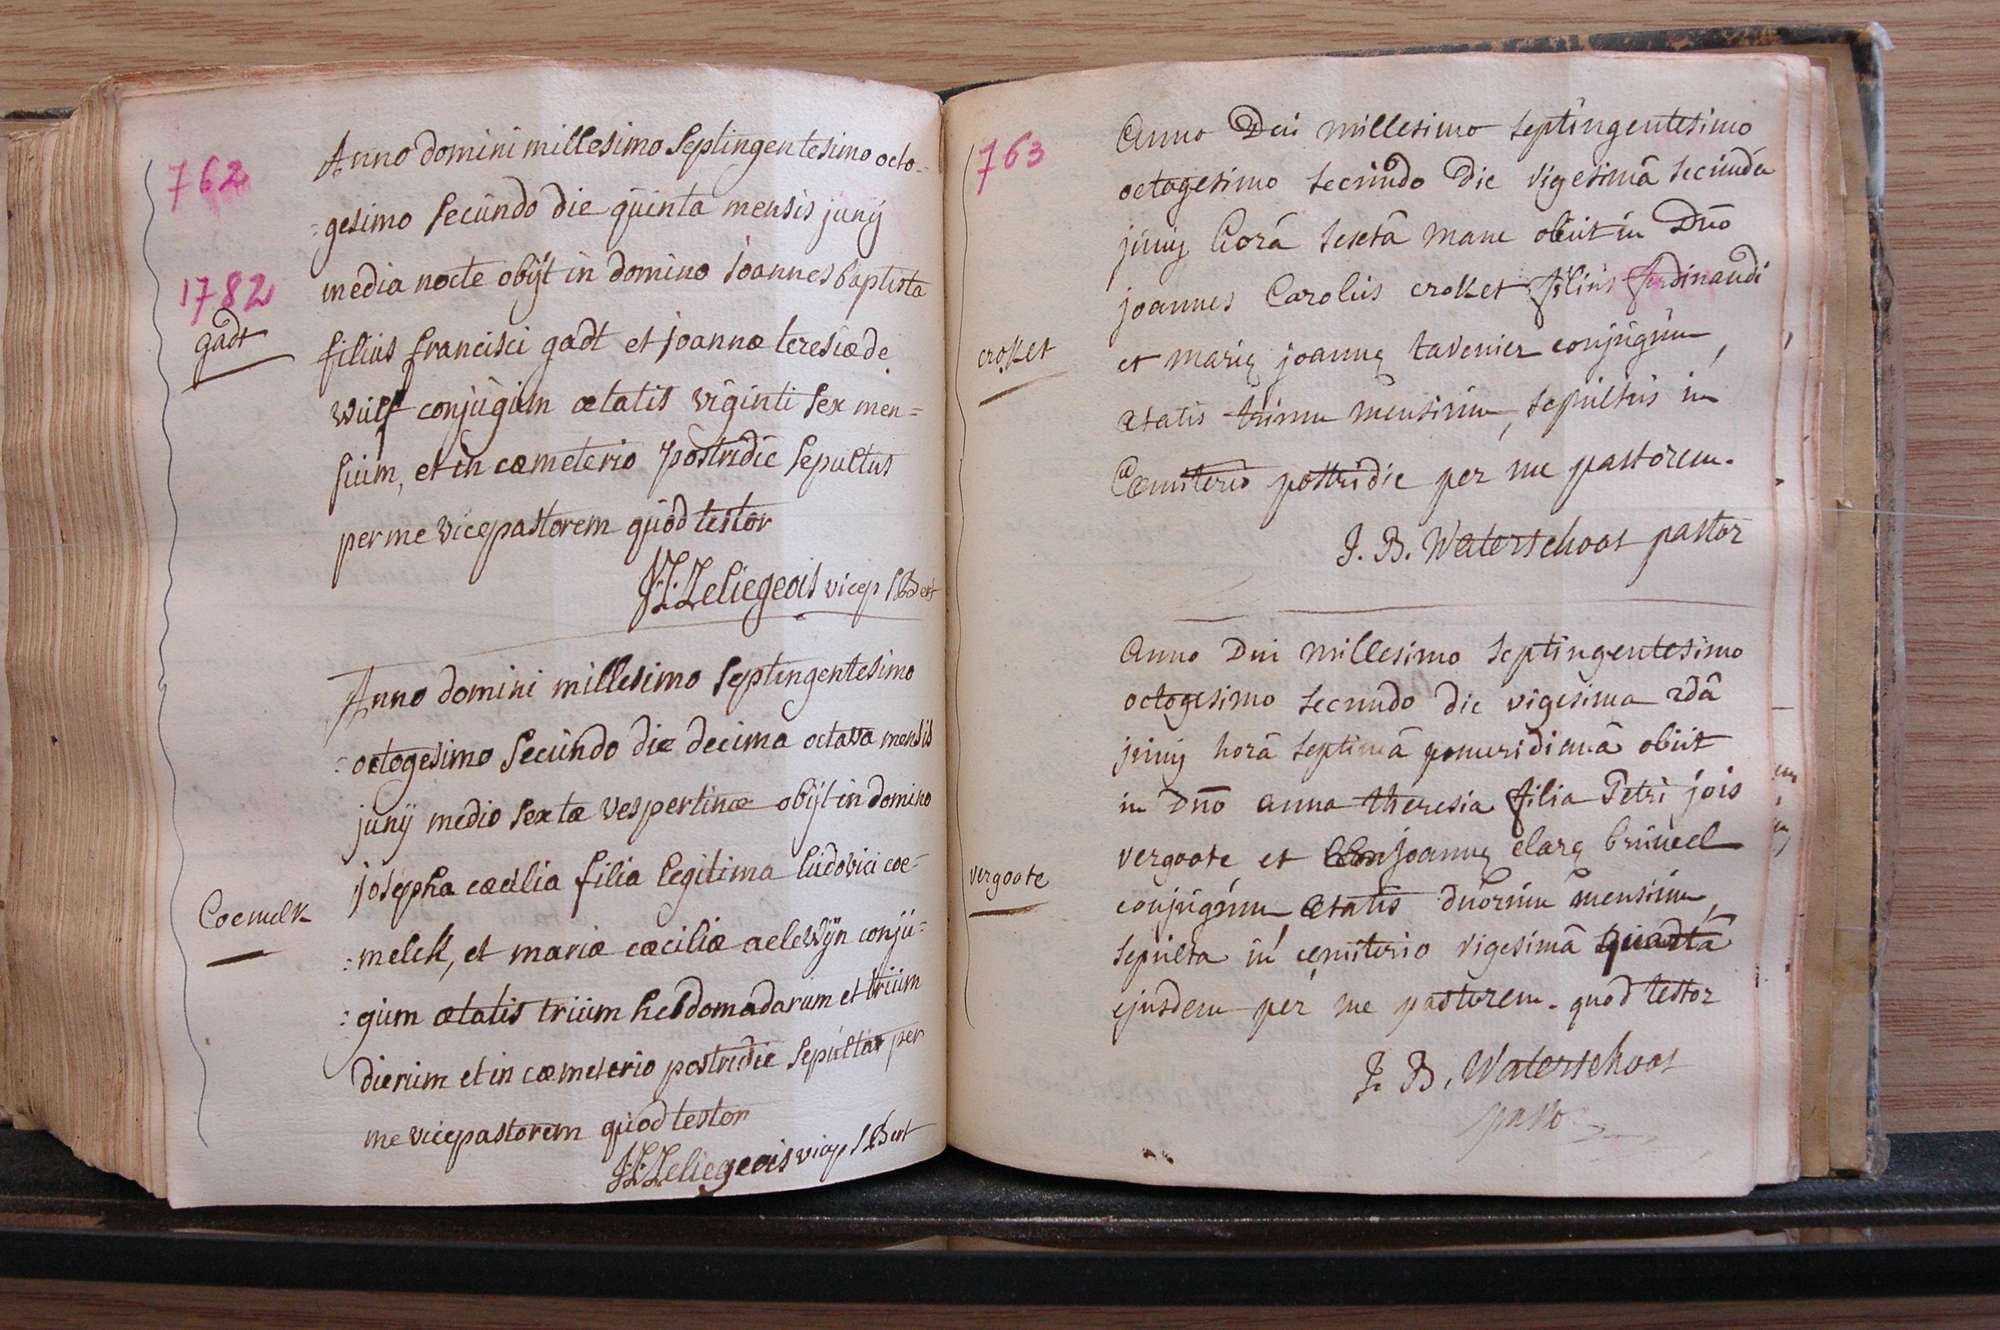 762
1782
gadt
Anno domini millesimo septingentesimo octo-
=gesimo secundo die quinta mensis junij
media nocte obijt in domino joannes baptista
filius francisci gadt et joannæ teresiæ de
wulf conjugum ætatis viginti sex men=
sium, et in cæmeterio postridie sepultus
per me vicepastorem quod testor
J:F:Leliegeois vicep SBert
Coemelk
Anno domini millesimo septingentesimo
=octogesimo secundo die decima octava mensis
junij medio sextæ vespertinæ obijt in domino
josepha cæcilia filia legitima ludovici coe=
=melck, et mariæ cæciliæ aelewijn conju=
=gum ætatis trium hebdomadarum et trium
dierum et in cæmeterio postridie sepulta per
me vicepastorem quod testor
J:F:Leliegeois vicep SBert
763
croket
Anno Dni millesimo septingentesimo
octogesimo secundo die vigesimâ secundâ
junij horâ sextâ mane obiit in Dño
joannes Carolus croket filius ferdinandi
et marię joannę tavenier conjugum,
ætatis trium mensium, sepultus in
Cœmiterio postridie per me pastorem.
J. B. Waterschoot pastor
vergoote
Anno Dni millesimo septingentesimo
octogesimo secundo die vigesima 2dâ
junij horâ septimâ pomeridianâ obiit
in Dño anna theresia filia Petri jois
vergoote et joannę clarę bruneel
conjugum, ætatis duorum mensium,
sepulta in cęmiterio vigesimâ quartâ
ejusdem per me pastorem. quod testor
J. B. Waterschoot
pasto